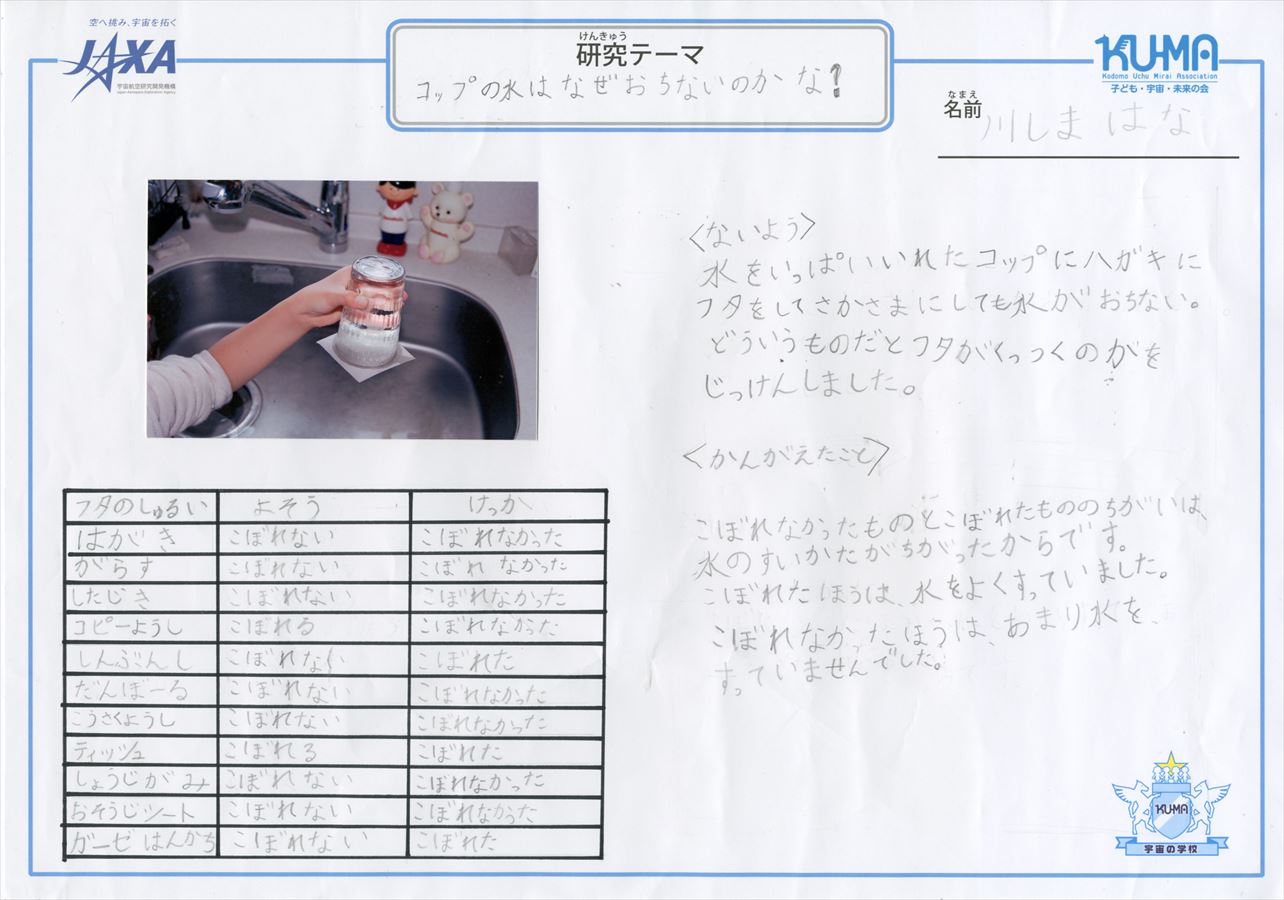 空へ挑み、宇宙を拓く
JAXA
宇宙航空研究開発機構
Japan Aerospace Exploration Agency
けんきゅう
研究テーマ
コップの水はなぜおちないのかな?
KU-MA
Kodomo Uchu Mirai Association
子ども・宇宙・未来の会
なまえ
名前 川しまはな
〈ないよう〉
水をいっぱいいれたコップにハガキに
フタをしてさかさまにしても水がおちない。
どういうものだとフタがくっつくのかを
じっけんしました。
〈かんがえたこと〉
こぼれなかったものとこぼれたもののちがいは、
水のすいかたがちがったからです。
こぼれたほうは、水をよくすっていました。
こぼれなかったほうは、あまり水を、
すっていませんでした。
フタのしゅるい よそう けっか
はがき こぼれない こぼれなかった
がらす こぼれない こぼれなかった
したじき こぼれない こぼれなかった
コピーようし こぼれる こぼれなかった
しんぶんし こぼれない こぼれた
だんぼーる こぼれない こぼれなかった
こうさくようし こぼれない こぼれなかった
ティッシュ こぼれる こぼれた
しょうじがみ こぼれない こぼれなかった
おそうじシート こぼれない こぼれなかった
ガーゼはんかち こぼれない こぼれた
KUMA
宇宙の学校